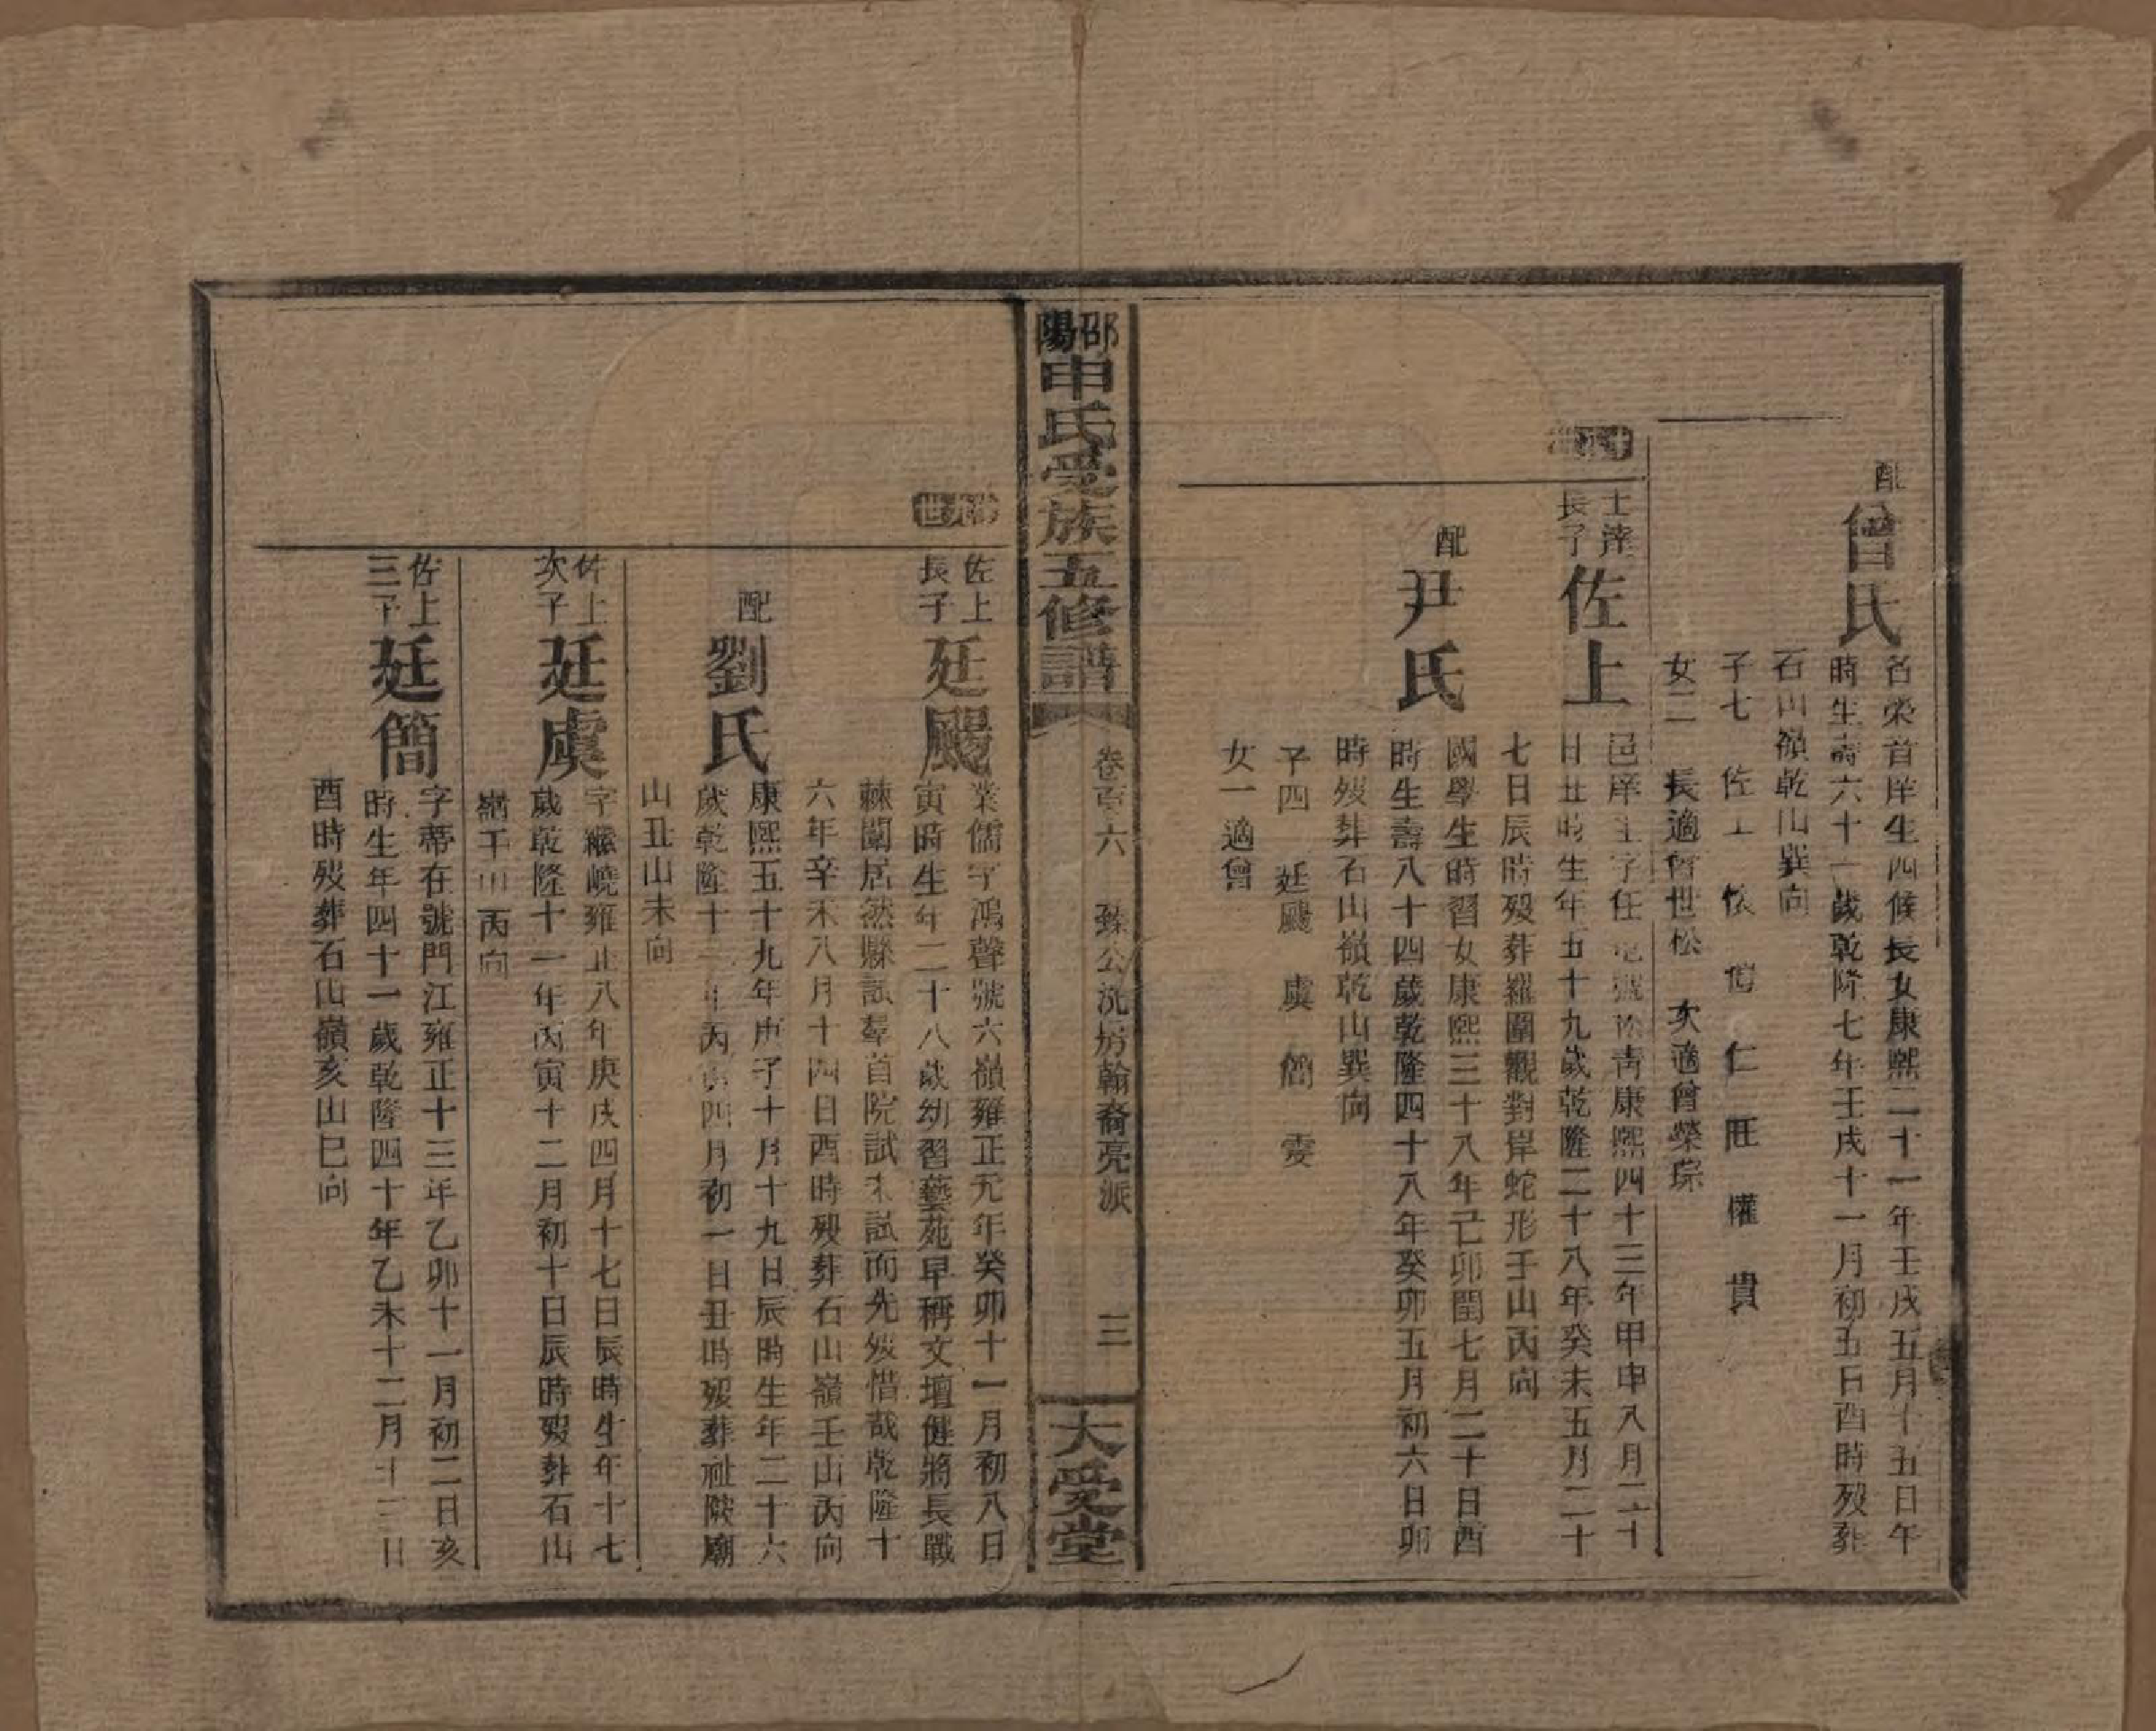 配
曾氏
名榮首庠生四候長女康熙二十一年壬戌五月十五日午
時生壽六十一歲乾隆七年壬戌十一月初五日酉時歿葬
石山嶺乾山巽向
子七 佐上 仁 旺 權 貴
女二 長適曾世松 次適曾榮琮
士
長子
佐上
邑庠生字任 號 青康熙四十三年甲申八月二十
日丑時生年五十九歲乾隆二十八年癸未五月二十
七日辰時歿葬羅圍觀對岸蛇形壬山丙向
配
尹氏
國學生時習女康熙三十八年己卯閏七月二十日酉
時生壽八十四歲乾隆四十八年癸卯五月初六日卯
時歿葬石山嶺乾山巽向
子四 廷颺 虞 簡 雯
女一適曾
邵陽申氏受族五修譜
卷百六 臻公洸房翰裔亮派
三
大受堂
世
佐上
長子
廷颺
業儒字鴻聲號六嶺雍正元年癸卯十一月初八日
寅時生年二十八歲幼習藝苑早稱文壇健將長戰
棘闈居然縣試羣首院試未試而先歿惜哉乾隆十
六年辛未八月十四日酉時歿葬石山嶺壬山丙向
配
劉氏
康熙五十九年庚子十月十九日辰時生年二十六
歲乾隆十一年丙寅四月初一日丑時歿葬祉陂廟
山丑山未向
佐上
次子
廷虞
字繼嶢雍正八年庚戌四月十七日辰時生年十七
歲乾隆十一年丙寅十二月初十日辰時歿葬石山
嶺壬山丙向
佐上
三子
廷簡
字蒂在號門江雍正十三年乙卯十一月初二日亥
時生年四十一歲乾隆四十年乙未十二月十二日
酉時歿葬石山嶺亥山巳向